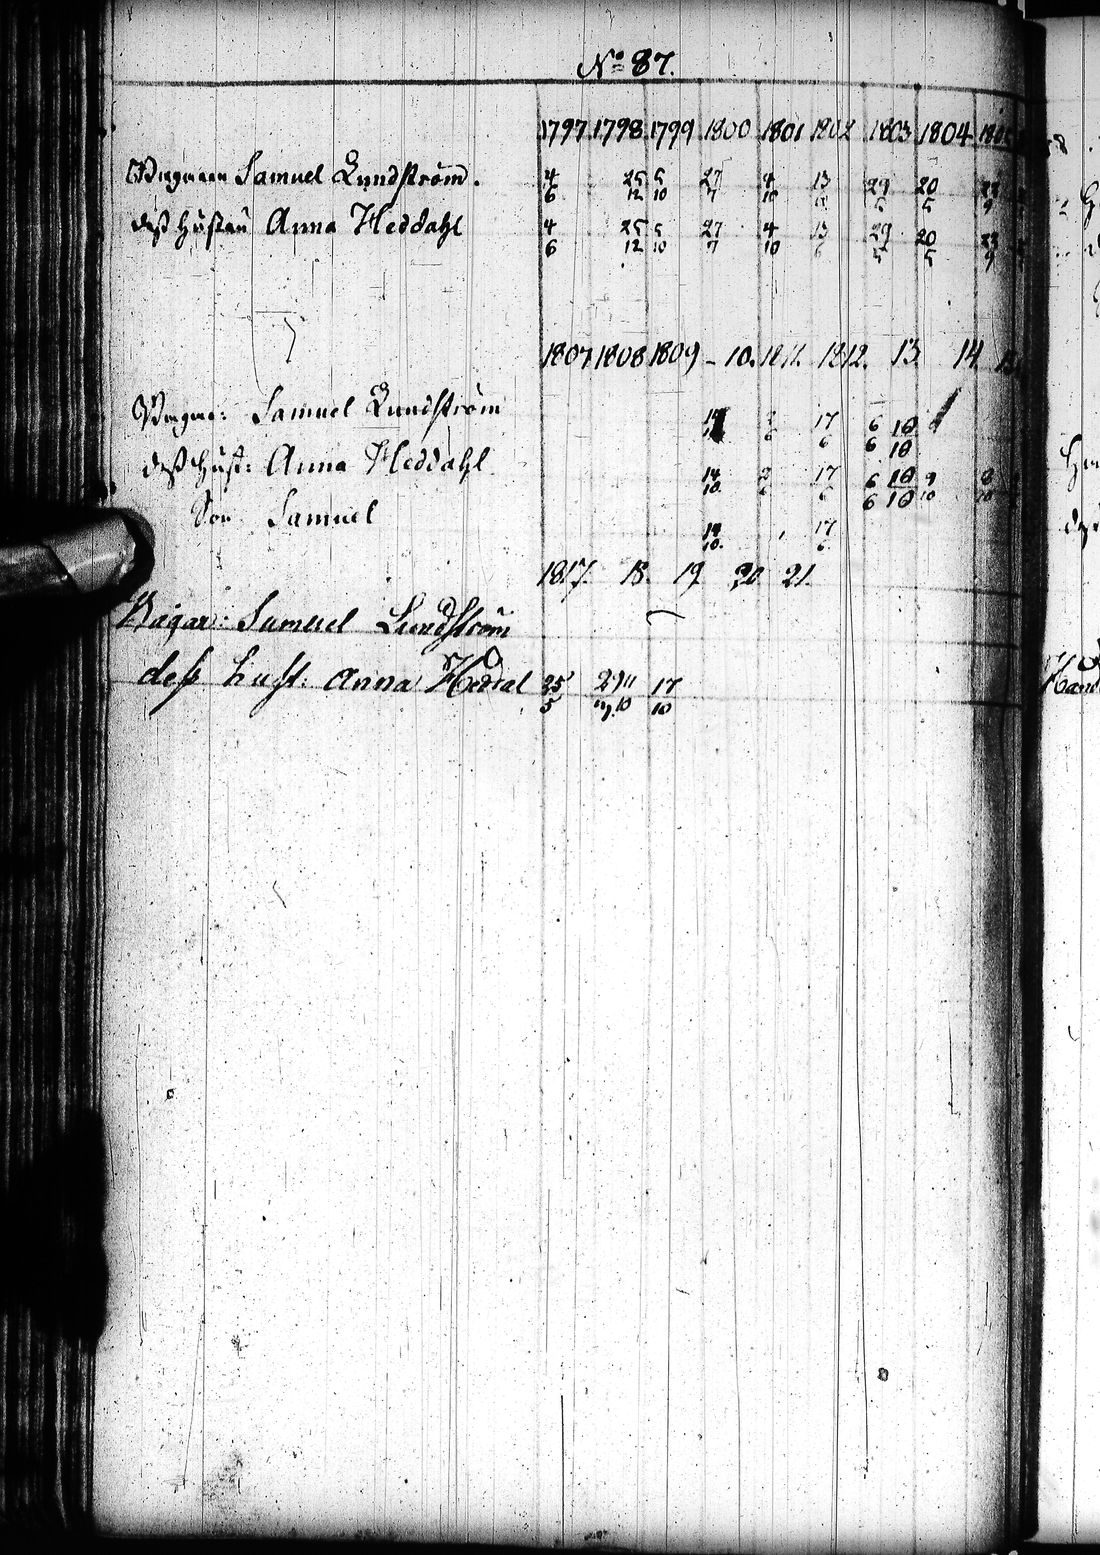 No 87.
1797 1798 1799 1800 1801 1802 1803 1804
Samuel Lundström.
4/6 25/12 5/10 27/7 4/10 13 29/5 20/5 23/9
dess hustru Anna Heddahl
4/6 25/12 5/10 27/7 4/10 13/6 29/5 20/5 23/9
1807 1808 1809 – 10. 1811. 1812. 13. 14.
Samuel Lundström
17/6 6/6 10/10
dess hust: Anna Heddahl
14/10. 2/6 17/6 6/6 10/10 9/10 8/10
Son Samuel
14/10. 17/6
1817. 18. 19 20 21.
Bagar: Samuel Lundström
dess hust: Anna Heddal 25/5 17/10